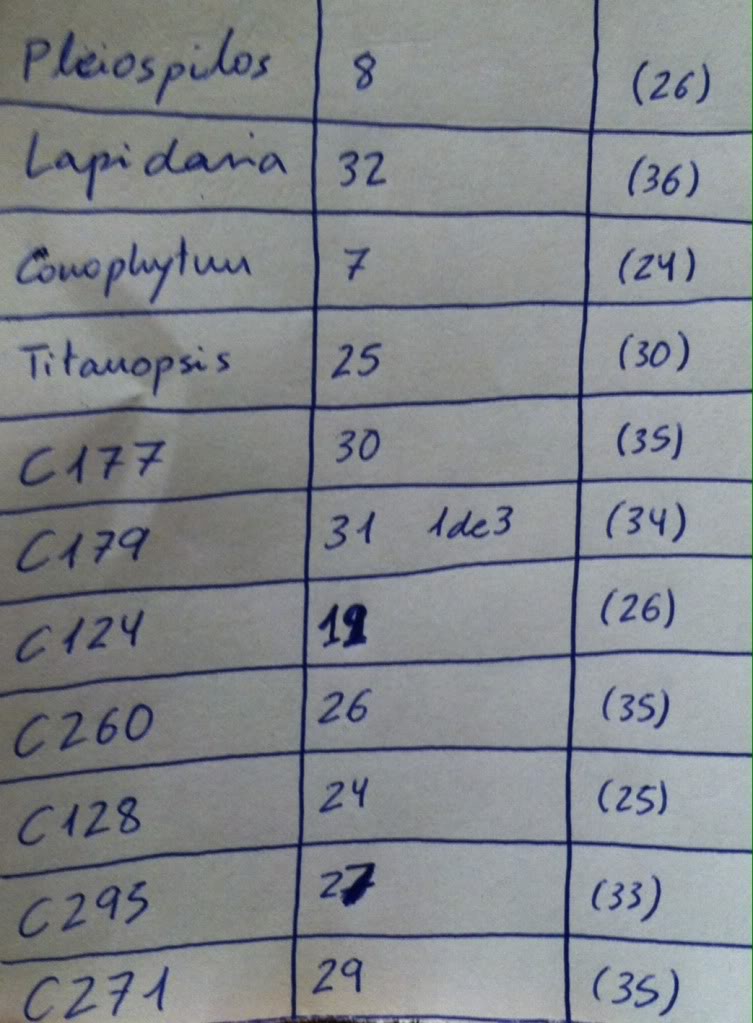 Pleiospilos 8 (26)
Lapidaria 32 (36)
Conophytum 7 (24)
Titanopsis 25 (30)
C177 30 (35)
C179 31 1de3 (34)
C124 (26)
C260 26 (35)
C128 24 (25)
C295 27 (33)
C271 29 (35)